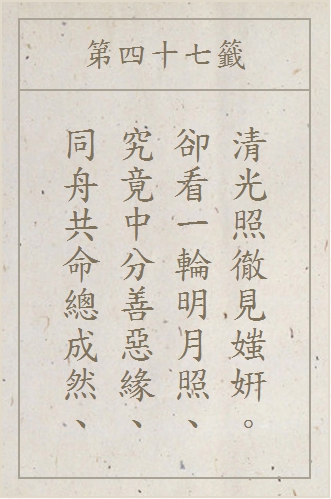 第四十七籤
同舟共命總成然、
究竟中分善惡緣、
卻看一輪明月照、
清光照徹見媸妍。